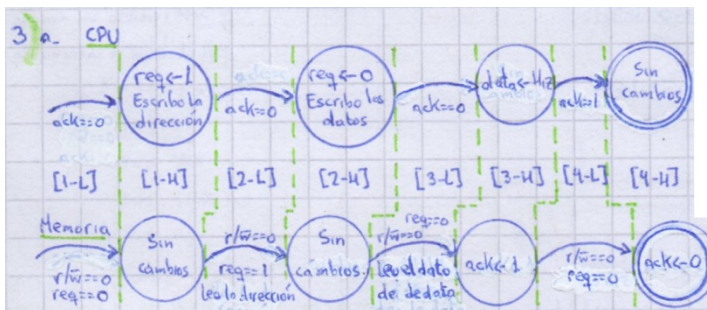 3) a_ CPU
ack==0
req<-1
Escribo la
dirección
ack==0
req<-0
Escribo los
datos
ack==0
data<-HiZ
ack==1
Sin
cambios
[1-L] [1-H] [2-L] [2-H] [3-L] [3-H] [4-L] [4-H]
Memoria
r/w̅==0
req==0
Sin
cambios
r/w̅==0
req==1
Leo la dirección
Sin
cambios
req==0
r/w̅==0
Leo el dato
de data
ack<-1
r/w̅==0
req==0
ack<-0